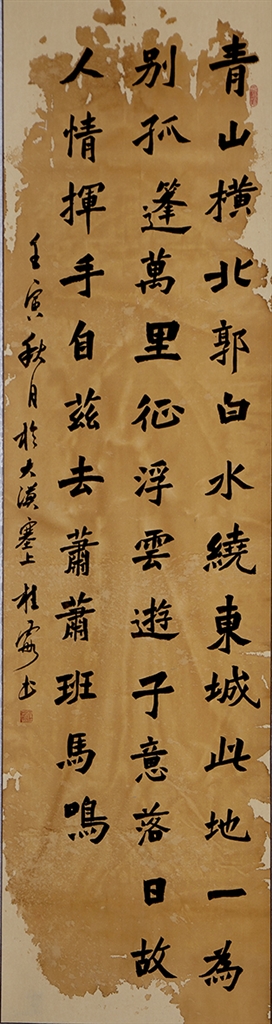 青山橫北郭白水繞東城此地一為
別孤篷萬里征浮雲遊子意落日故
人情揮手自茲去蕭蕭班馬鳴
壬寅秋月於大漠塞上桂書